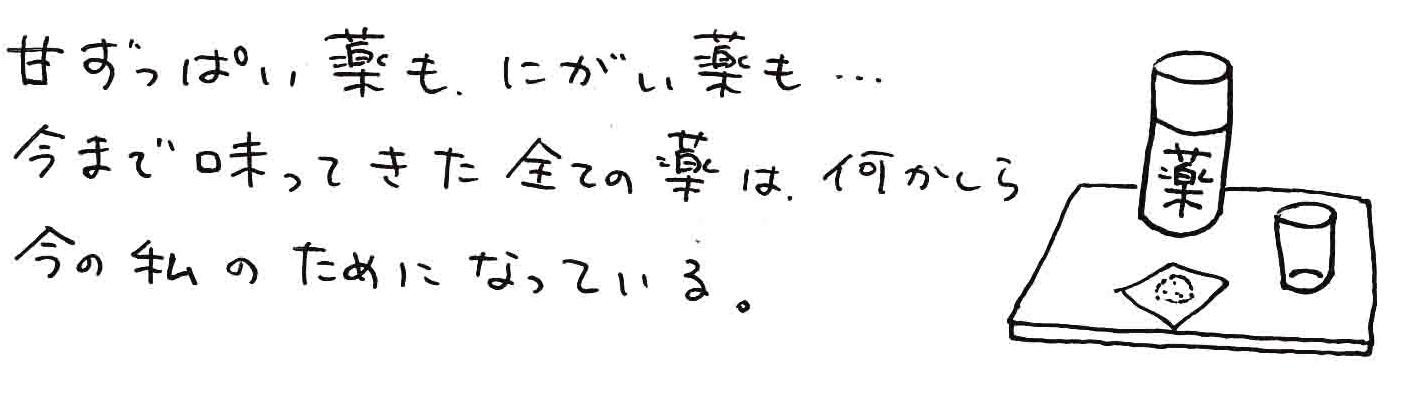 甘ずっぱい薬も、にがい薬も…
今まで味ってきた全ての薬は、何かしら
今の私のためになっている。
薬